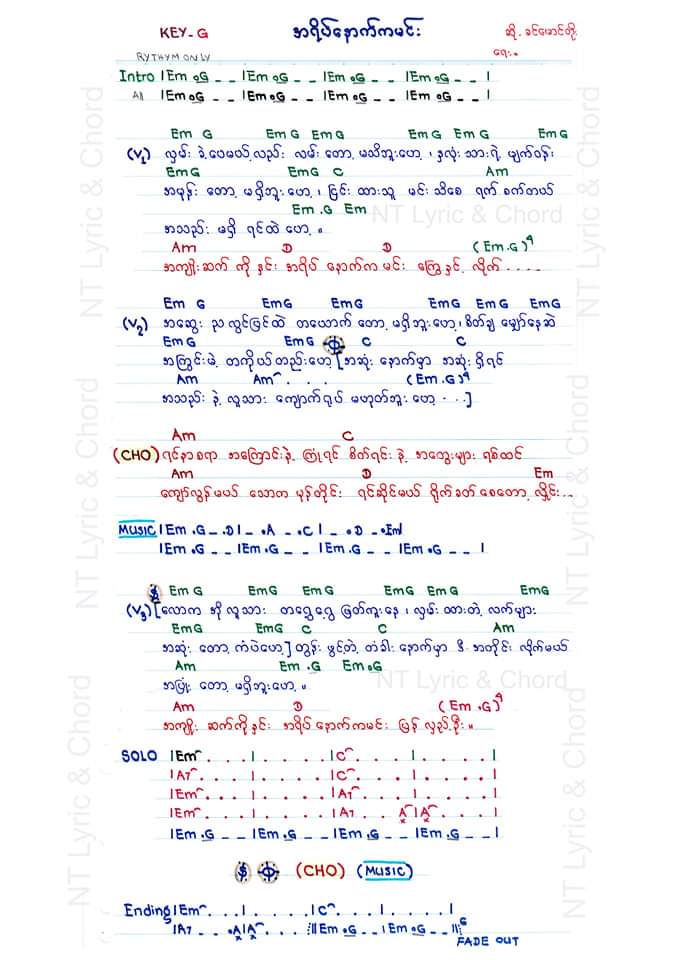 KEY-G အရိပ်နောက်ကမင်း ဆို . ခင်မောင်တိုး
RYTHYM ONLY ရေး-
Intro |Em .G _ _ |Em .G _ _ |Em .G _ _ |Em .G _ _ |
All |Em .G _ _ |Em .G _ _ |Em .G _ _ |Em .G _ _ |
Em G Em G Em G Em G Em G Em G
(V1) လှမ်း ခဲ့ပေမယ့်လည်း လမ်း တော့ မသိဘူးဟေ့ ၊ နှလုံး သားရဲ့ မျက်ဝန်း
Em G Em G C Am
အမုန်း တော့ မရှိဘူးဟေ့ ၊ ငြင်း ထားသူ မင်း သိစေ ရက် စက်တယ်
Em .G Em
အသည်း မရှိ ရင်ထဲ ဟေ့ ။
Am D D (Em .G)4
အကျိုးဆက် ကို နှင်း အရိပ် နောက်က မင်း ကြွေနှင့် လိုက် . . . .
Em G Em G Em G Em G Em G Em G
(V2) အဆွေး ညလွင်ပြင်ထဲ တယောက် တော့ မရှိဘူးဟေ့ ၊ စိတ်ချ မျှော်နေဆဲ
Em G Em G C C
အကြွင်းမဲ့ တကိုယ်တည်းဟေ့ [ အဆုံး နောက်မှာ အဆုံး ရှိရင်
Am Am . . . (Em .G)4
အသည်း နဲ့ လူသား ကျောက်ရုပ် မဟုတ်ဘူး ဟေ့ . . . ]
Am C
(CHO) ရင်နာစရာ အကြောင်းနဲ့ ကြုံရင် စိတ်ရင်း နဲ့ အတွေးများ ရစ်ထင်
Am D Em
ကျော်လွန်မယ် သောက မုန်တိုင်း ရင်ဆိုင်မယ် ရိုက်ခတ် စေတော့ လှိုင်း . . .
MUSIC |Em .G _ .D | _ .A _ .C | _ .D _ .Em |
|Em .G _ _ |Em .G _ _ |Em .G _ _ |Em .G _ _ |
Em G Em G Em G Em G Em G Em G
(V3) [ လောက ကို လူသား တရွေ့ရွေ့ ဖြတ်ကူးနေ ၊ လှမ်း ထားတဲ့ လက်များ
Em G Em G C C Am
အဆုံး တော့ ကံပဲဟေ့ ] တွန်း ဖွင့်တဲ့ တံခါး နောက်မှာ ဒီ အတိုင်း လိုက်မယ်
Am Em .G Em .G
အပြုံး တော့ မရှိဘူးဟေ့ ။
Am D (Em .G)4
အကျိုး ဆက်ကိုနှင်း အရိပ် နောက်ကမင်း ပြန် လှည့်ဦး ။
SOLO |Em . . . | . . . . |C . . . | . . . . |
|A7 . . . | . . . . |C . . . | . . . . |
|Em . . . | . . . . |A7 . . . | . . . . |
|Em . . . | . . . . |A7 . . . A|A . . . . |
|Em .G _ _ |Em .G _ _ |Em .G _ _ |Em .G _ _ |
(CHO) (MUSIC)
Ending |Em . . . | . . . . |C . . . | . . . . |
|A7 _ _ .A|A . . . :||Em .G _ _ |Em .G _ _ ||: 6
FADE OUT
NT Lyric & Chord
NT Lyric & Chord
NT Lyric & Chord
NT Lyric & Chord
NT Lyric & Chord
NT Lyric & Chord
NT Lyric & Chord
NT Lyric & Chord